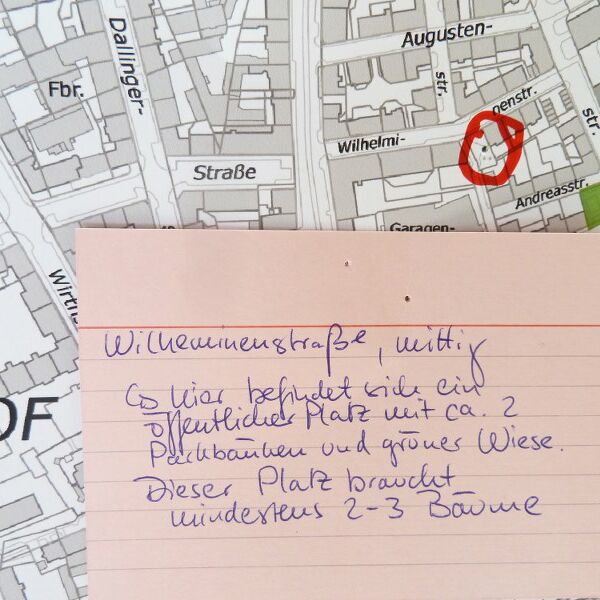 Augusten-
Dallinger-
Fbr.
str.
nenstr.
Wilhelmi-
str.
Straße
Andreasstr.
Garagen-
Wirth
OF
Wilheminenstraße, mittig
↳ hier befindet sich ein
öffentlicher Platz mit ca. 2
Parkbänken und grüner Wiese.
Dieser Platz braucht
mindestens 2-3 Bäume